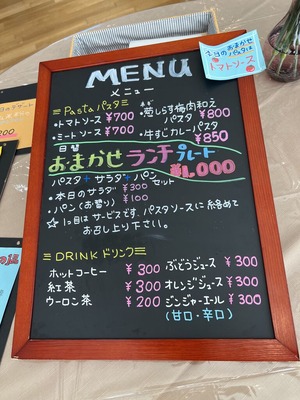 MENU
メニュー
今日のおまかせ
パスタは
トマトソース
≡Pastaパスタ≡
・トマトソース ¥700
・ミートソース ¥700
・葱しらす梅肉和え
パスタ ¥800
・牛すじカレーパスタ
¥850
日替
おまかせランチプレート
¥1,000
パスタ+サラダ+パン セット
・本日のサラダ ¥300
・パン(お替り) ¥100
☆1コ目はサービスです。パスタソースに絡めて
お召し上り下さい。
≡DRINKドリンク≡
ホットコーヒー ¥300
紅茶 ¥300
ウーロン茶 ¥200
ぶどうジュース ¥300
オレンジジュース ¥300
ジンジャーエール ¥300
(甘口・辛口)
200